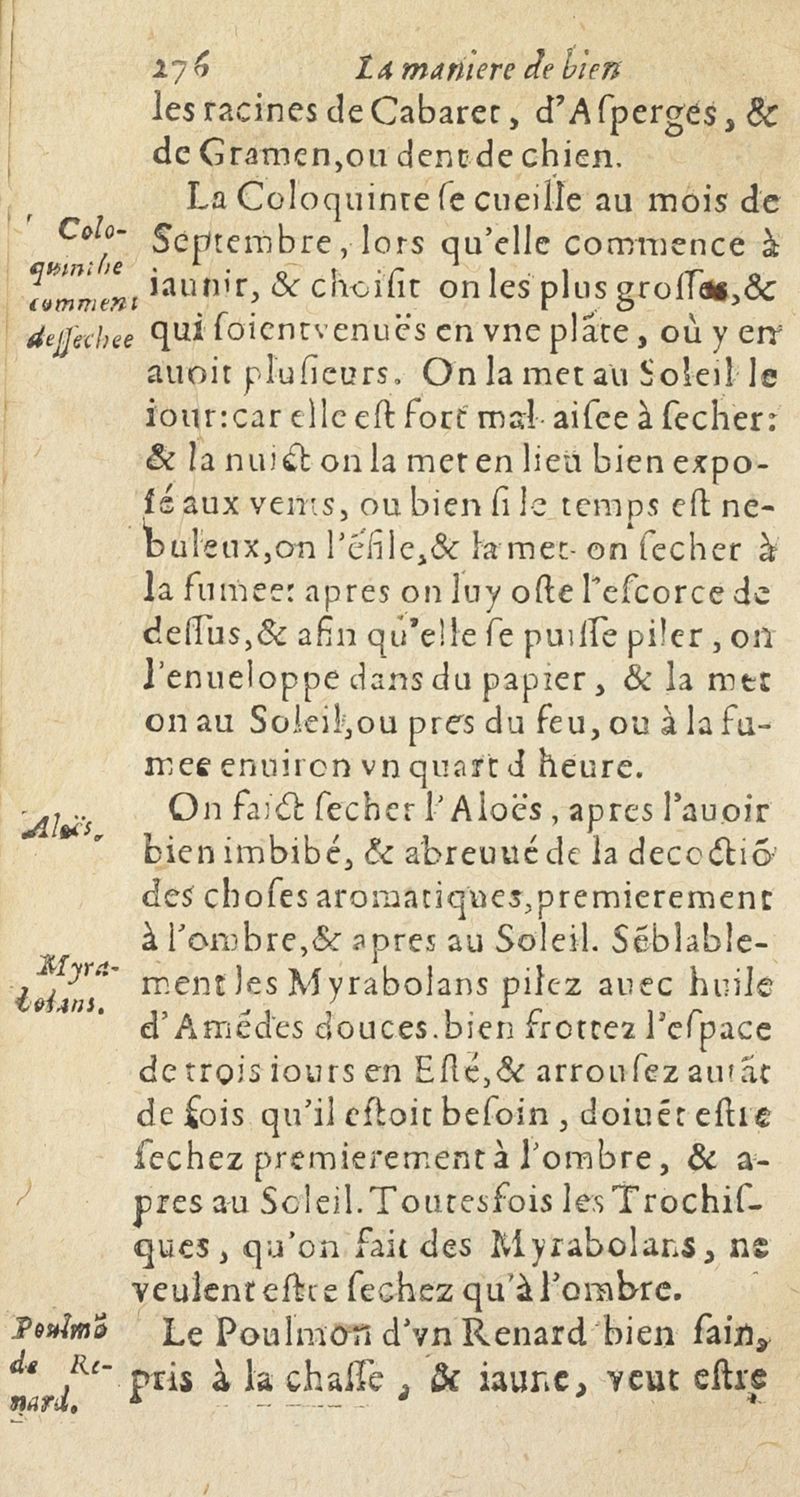 276 La maniere de bien
les racines de Cabaret, d'Aſperges, &
de Gramen,ou dent de chien.
La Coloquinte ſe cueille au mois de
Colo-
quinthe
comment
deſſechee
Septembre, lors qu'elle commence à
iaunir, & choiſit on les plus groſſes,&
qui ſoient venuës en vne plāte, où y en
auoit pluſieurs. On la met au Soleil le
iour:car elle eſt fort mal aiſee à ſecher:
& la nuict on la met en lieu bien expo-
ſé aux vents, ou bien ſi le temps eſt ne-
buleux,on l'éfile,& la met- on ſecher à
la fumee: apres on luy oſte l'eſcorce de
deſſus,& afin qu'elle ſe puiſſe piler, on
l'enueloppe dans du papier, & la met
on au Soleil,ou pres du feu, ou à la fu-
mee enuiron vn quart d heure.
Aloës.
On faict ſecher l'Aloës, apres l'auoir
bien imbibé, & abreuué de la decoctiō
des choſes aromatiques,premierement
à l'ombre,& apres au Soleil. Sēblable-
Myra-
bolans.
ment les Myrabolans pilez auec huile
d'Amēdes douces.bien frottez l'eſpace
de trois iours en Eſté,& arrouſez autāt
de fois qu'il eſtoit beſoin, doiuēt eſtre
ſechez premierement à l'ombre, & a-
pres au Soleil. Toutesfois les Trochiſ-
ques, qu'on fait des Myrabolans, ne
veulent eſtre ſechez qu'à l'ombre.
Poulmō
de Re-
nard.
Le Poulmon d'vn Renard bien ſain,
pris à la chaſſe, & iaune, veut eſtre